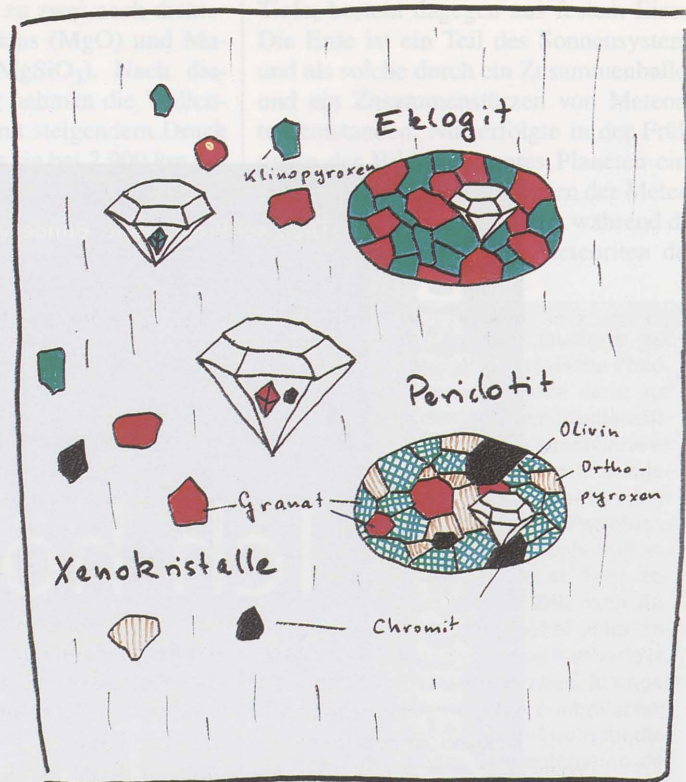 Eklogit
Klinopyroxen
Peridotit
Olivin
Ortho-
pyroxen
Granat
Xenokristalle
Chromit